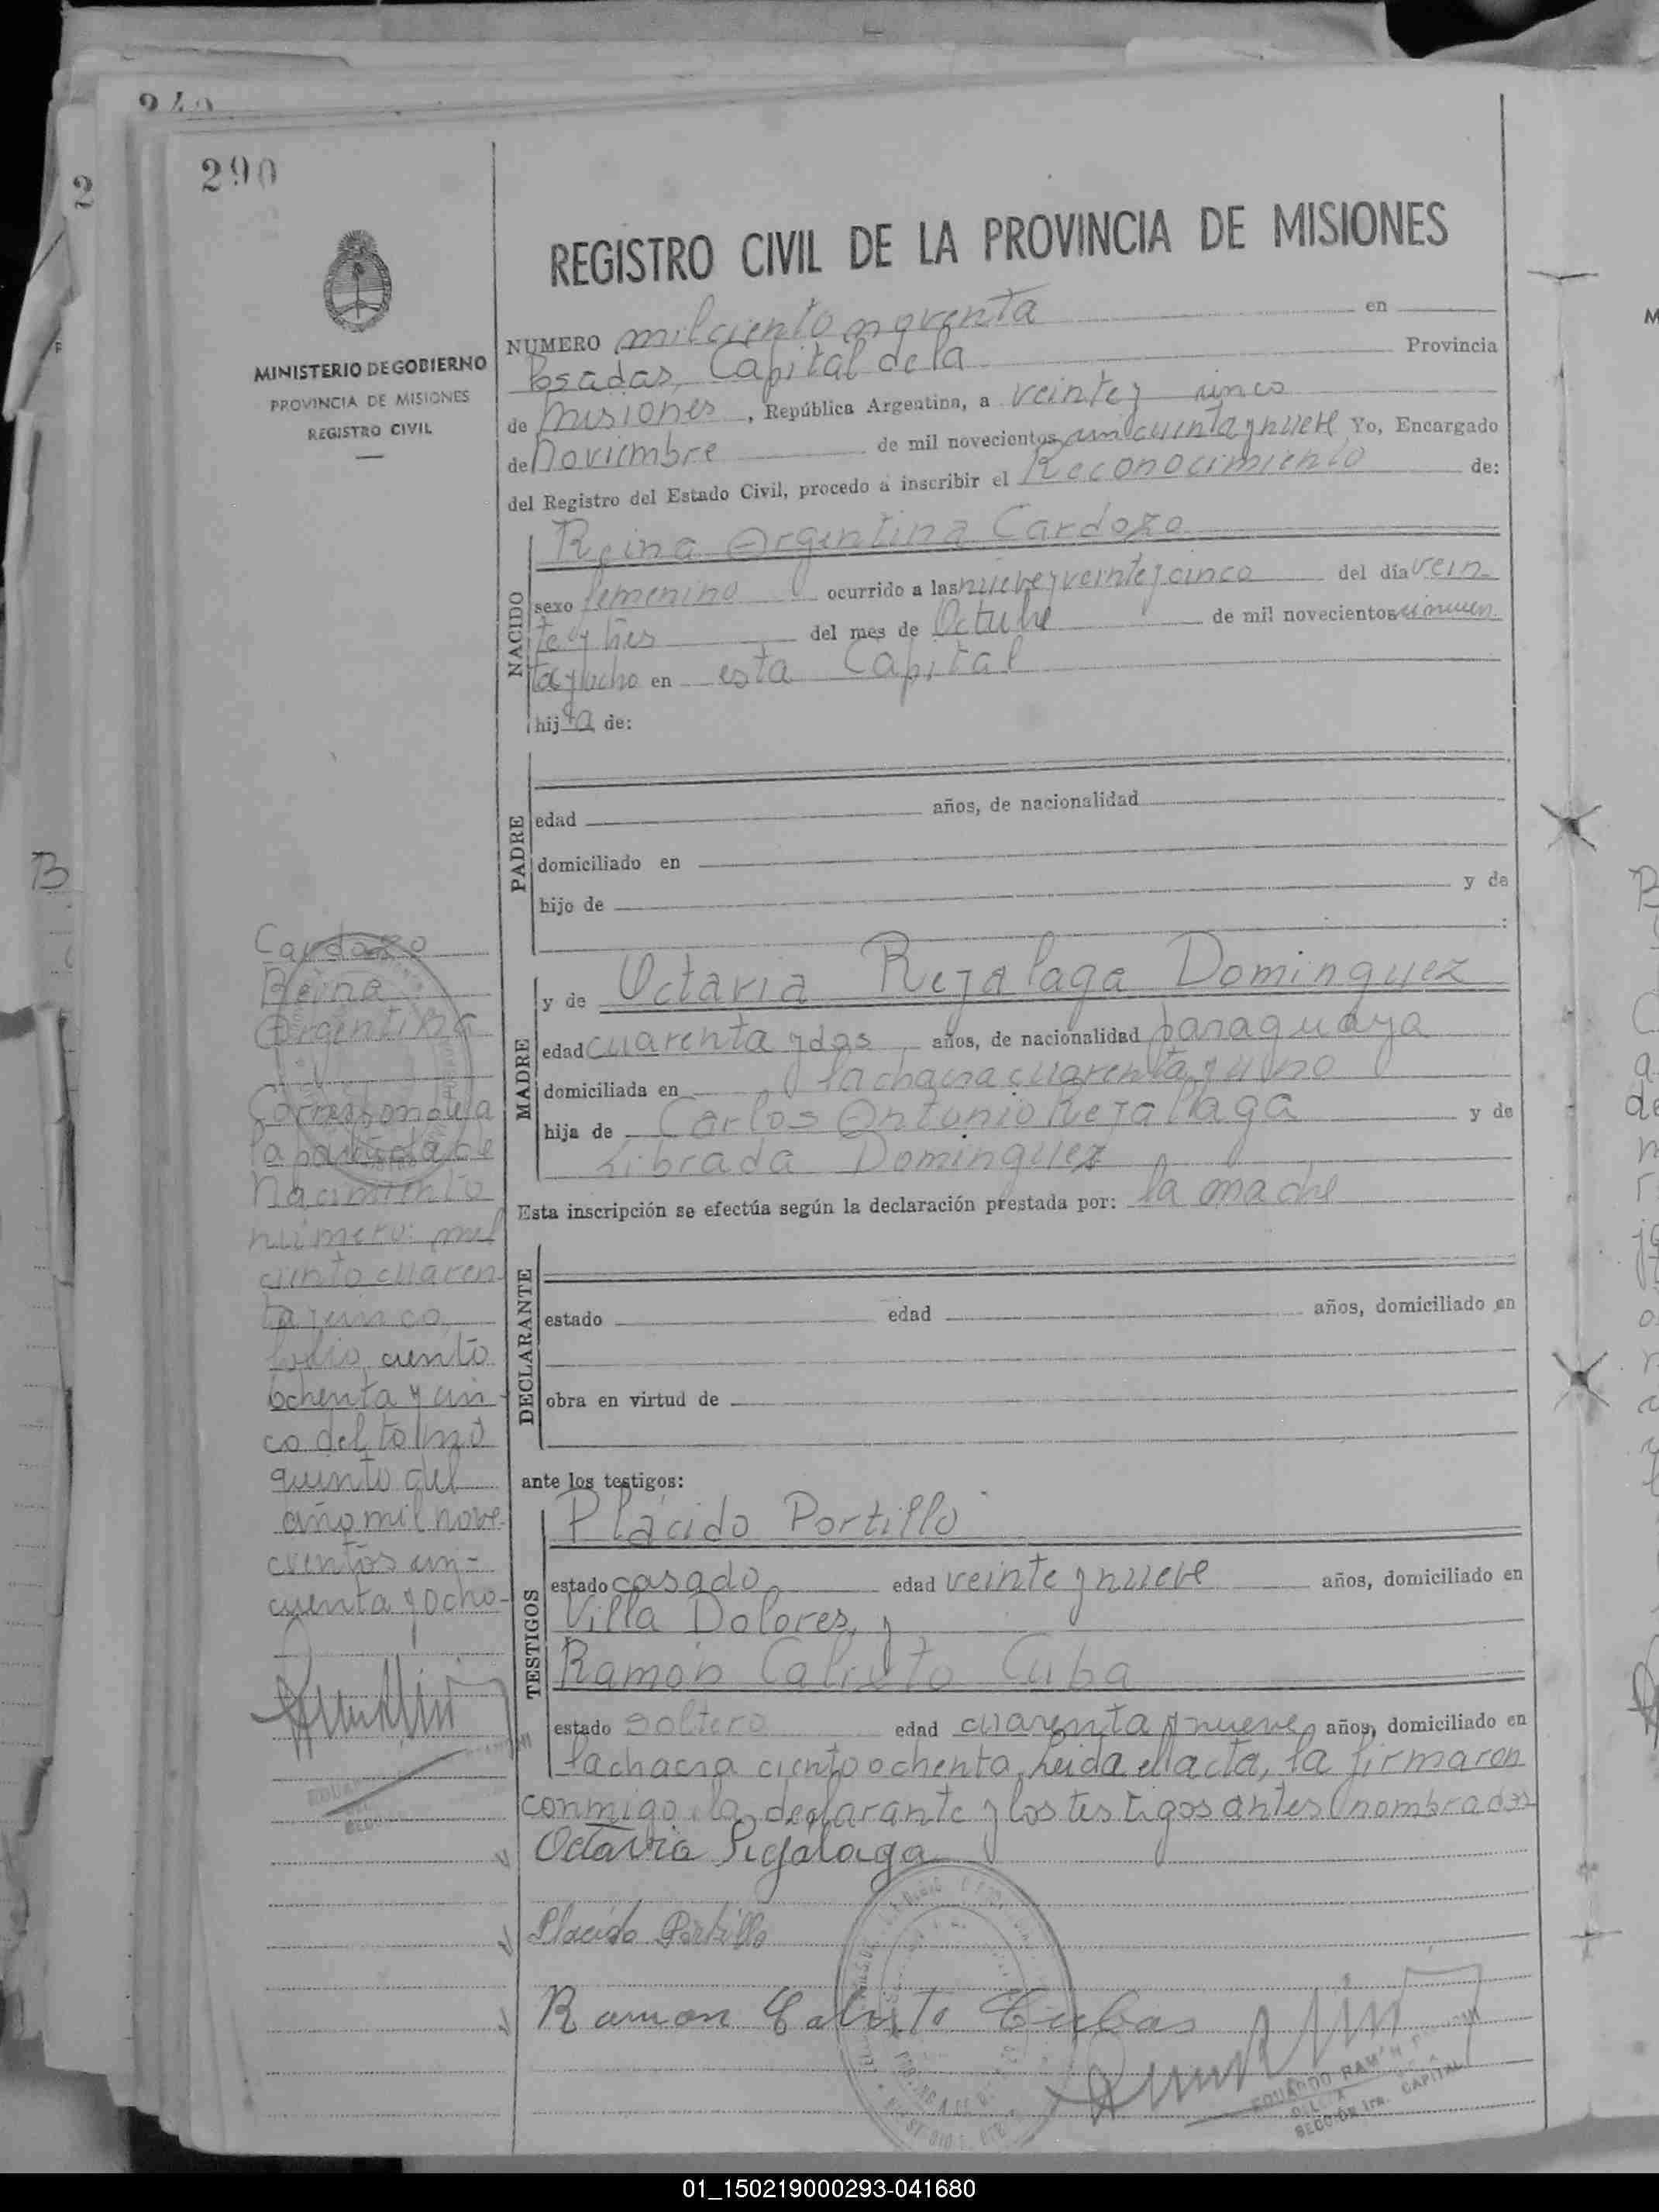 290
MINISTERIO DE GOBIERNO
PROVINCIA DE MISIONES
REGISTRO CIVIL
REGISTRO CIVIL DE LA PROVINCIA DE MISIONES
NUMERO mil ciento noventa en
Posadas, Capital de la Provincia
de Misiones, República Argentina, a veinte y cinco
de Noviembre de mil novecientos cincuenta y nueve Yo, Encargado
del Registro del Estado Civil, procedo a inscribir el Reconocimiento de:
NACIDO
Reina Argentina Cardozo
sexo femenino ocurrido a las nueve y veinte y cinco del día vein
te y tres del mes de Octubre de mil novecientos cincuen
ta y ocho en esta Capital
hija de:
PADRE
edad años, de nacionalidad
domiciliado en
hijo de y de
MADRE
y de Octavia Rejalaga Dominguez
edad cuarenta y dos años, de nacionalidad paraguaya
domiciliada en la chacra cuarenta y uno
hija de Carlos Antonio Rejallaga y de
Librada Dominguez
Esta inscripción se efectúa según la declaración prestada por: la madre
DECLARANTE
estado edad años, domiciliado en
obra en virtud de
ante los testigos:
TESTIGOS
Plácido Portillo
estado casado edad veinte y nueve años, domiciliado en
Villa Dolores, y
Ramón Calixto Cuba
estado soltero edad cuarenta y nueve años, domiciliado en
la chacra ciento ochenta, leida el acta, la firmaron
conmigo, la declarante y los testigos antes nombrados
Octavia Rigalaga
Placido Portillo
Ramon Calixto Cubas
EDUARDO RAMÓN
SECCIÓN 1ra. CAPITAL
Cardozo
Reina
Argentina
Corresponde a
la partida de
Nacimiento
número: mil
ciento cuaren
ta y cinco,
folio ciento
ochenta y cin
co del tomo
quinto del
año mil nove-
cientos cin-
cuenta y ocho-
01_150219000293-041680